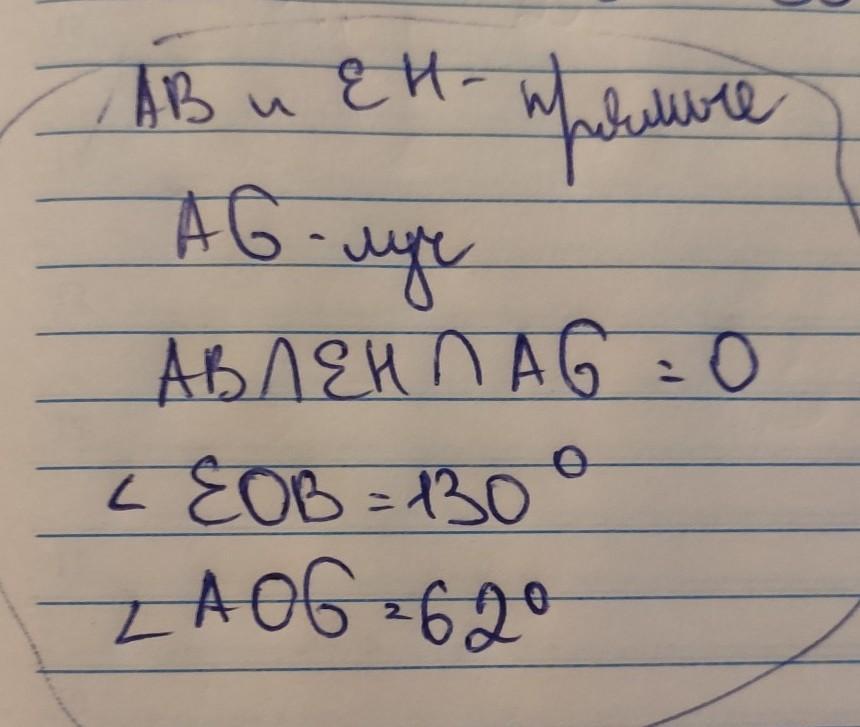 AB и EH - прямые
AG - луч
AB ∩ EH ∩ AG = O
< EOB = 130°
∠ AOG = 62°